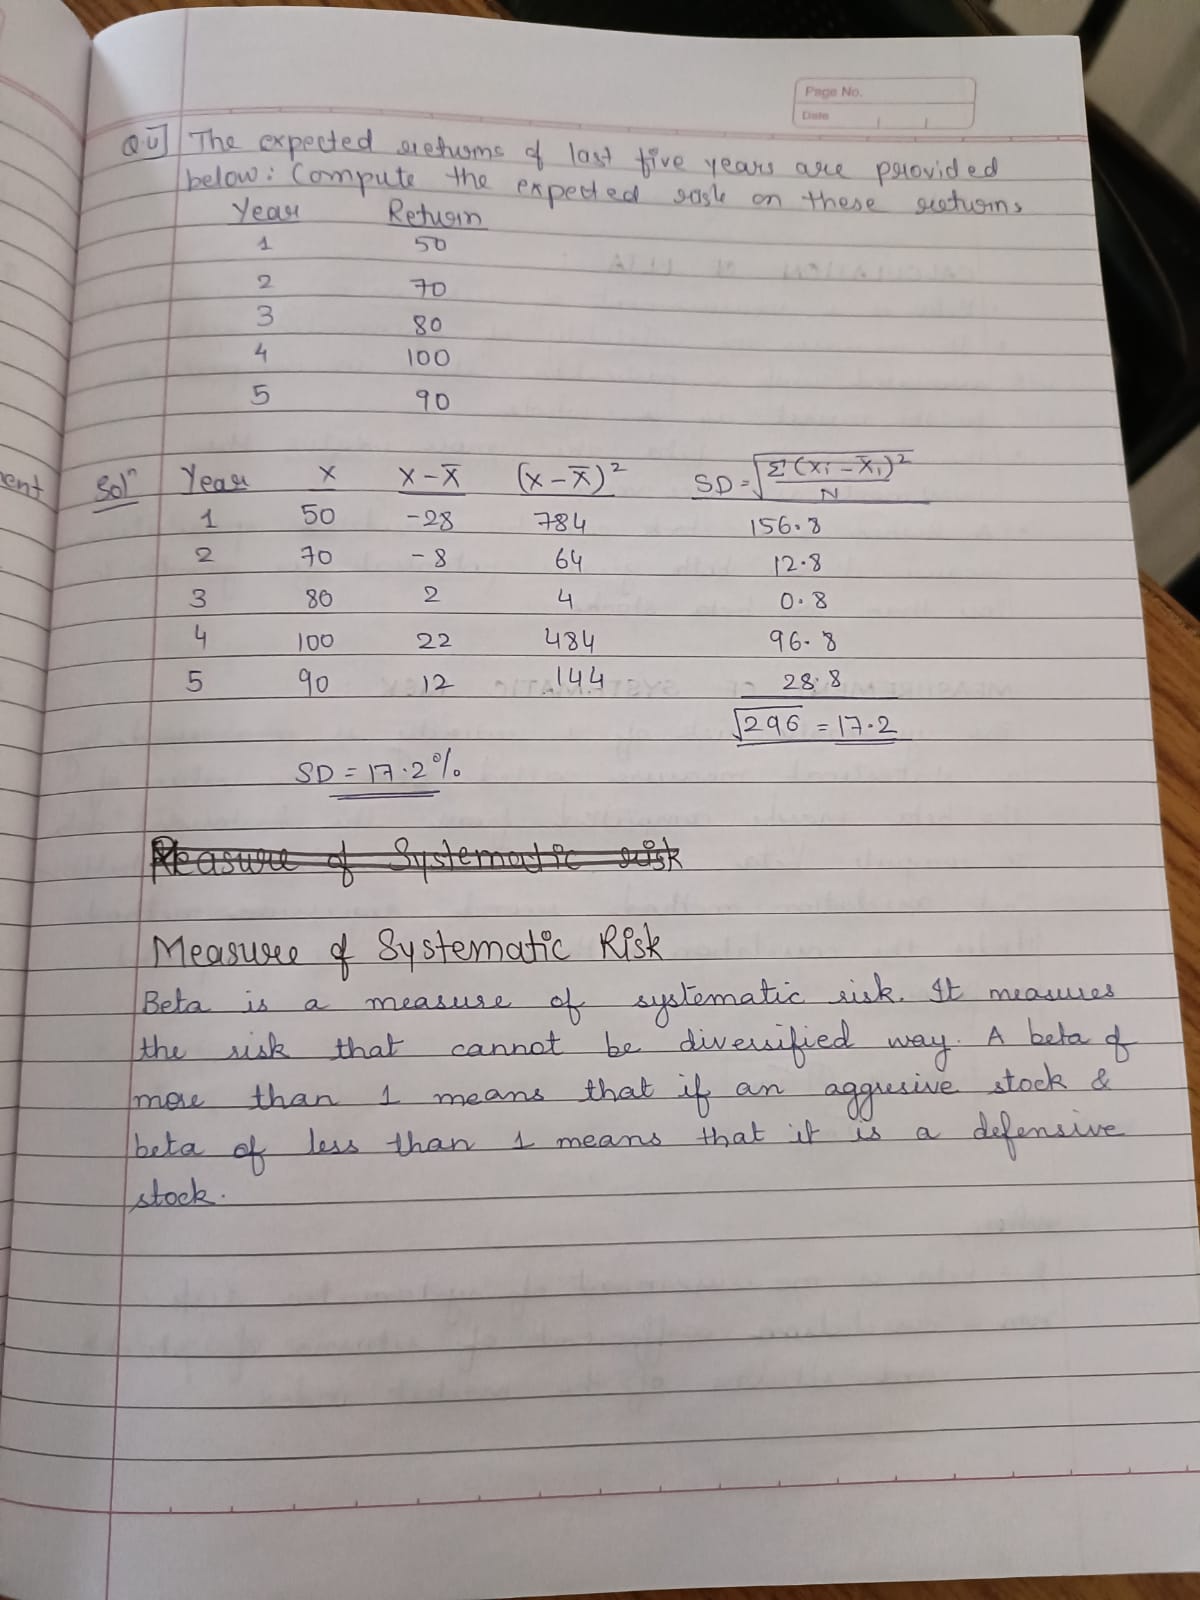 Page No.
Date
Q.U] The expected returns of last five years are provided
below: Compute the expected risk on these returns
Year Return
1 50
2 70
3 80
4 100
5 90
ent
Solⁿ Year X X-X̄ (X-X̄)² SD=√Σ(Xi-X̄i)²/N
1 50 -28 784 156.8
2 70 -8 64 12.8
3 80 2 4 0.8
4 100 22 484 96.8
5 90 12 144 28.8
√296 = 17.2
SD = 17.2%
Measure of Systematic risk
Measure of Systematic Risk
Beta is a measure of systematic risk. It measures
the risk that cannot be diversified way. A beta of
more than 1 means that if an aggresive stock &
beta of less than 1 means that it is a defensive
stock.